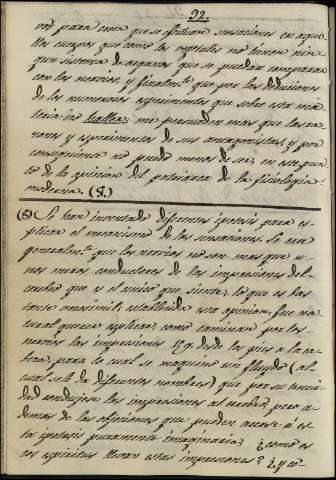 92.
nos para creer que se efectuen sensaciones en aque-
llos cuerpos que como los vegetales no tienen nin-
gun sistema de organos que se puedan comparar
con los nervios; y finalm.te que por las deducciones
de los numerosos esperimentos que sobre esta ma-
teria con Haller me persuaden mas que las ra-
zones y esperimentos de sus antagonistas y por
consiguiente no puedo menos de ser en este pun-
to de la opinion del patriarca de la fisiologia
moderna. (8.)
(8) Se han inventado diferentes ipotesis para es-
plicar el mecanismo de las sensaciones. Se cree
generalm.te que los nervios no son mas que u-
nos meros conductores de las impresiones del
cerebro que es el unico que siente, lo que es bas-
tante verosimil; establecida esta opinion, fue na-
tural querer explicar como caminan por los
nervios las impresiones v.g. desde los pies a la ca-
beza, para lo cual se imaginó un fluydo (el
cual sele dió diferentes nombres) que por su
condujese las impresiones al cerebro, pero a-
demas de las objeciones que pueden acerse á es-
ta ipotesis puramente imaginaria ¿como es
os espiritus llevan estas impresiones? ¿y co-